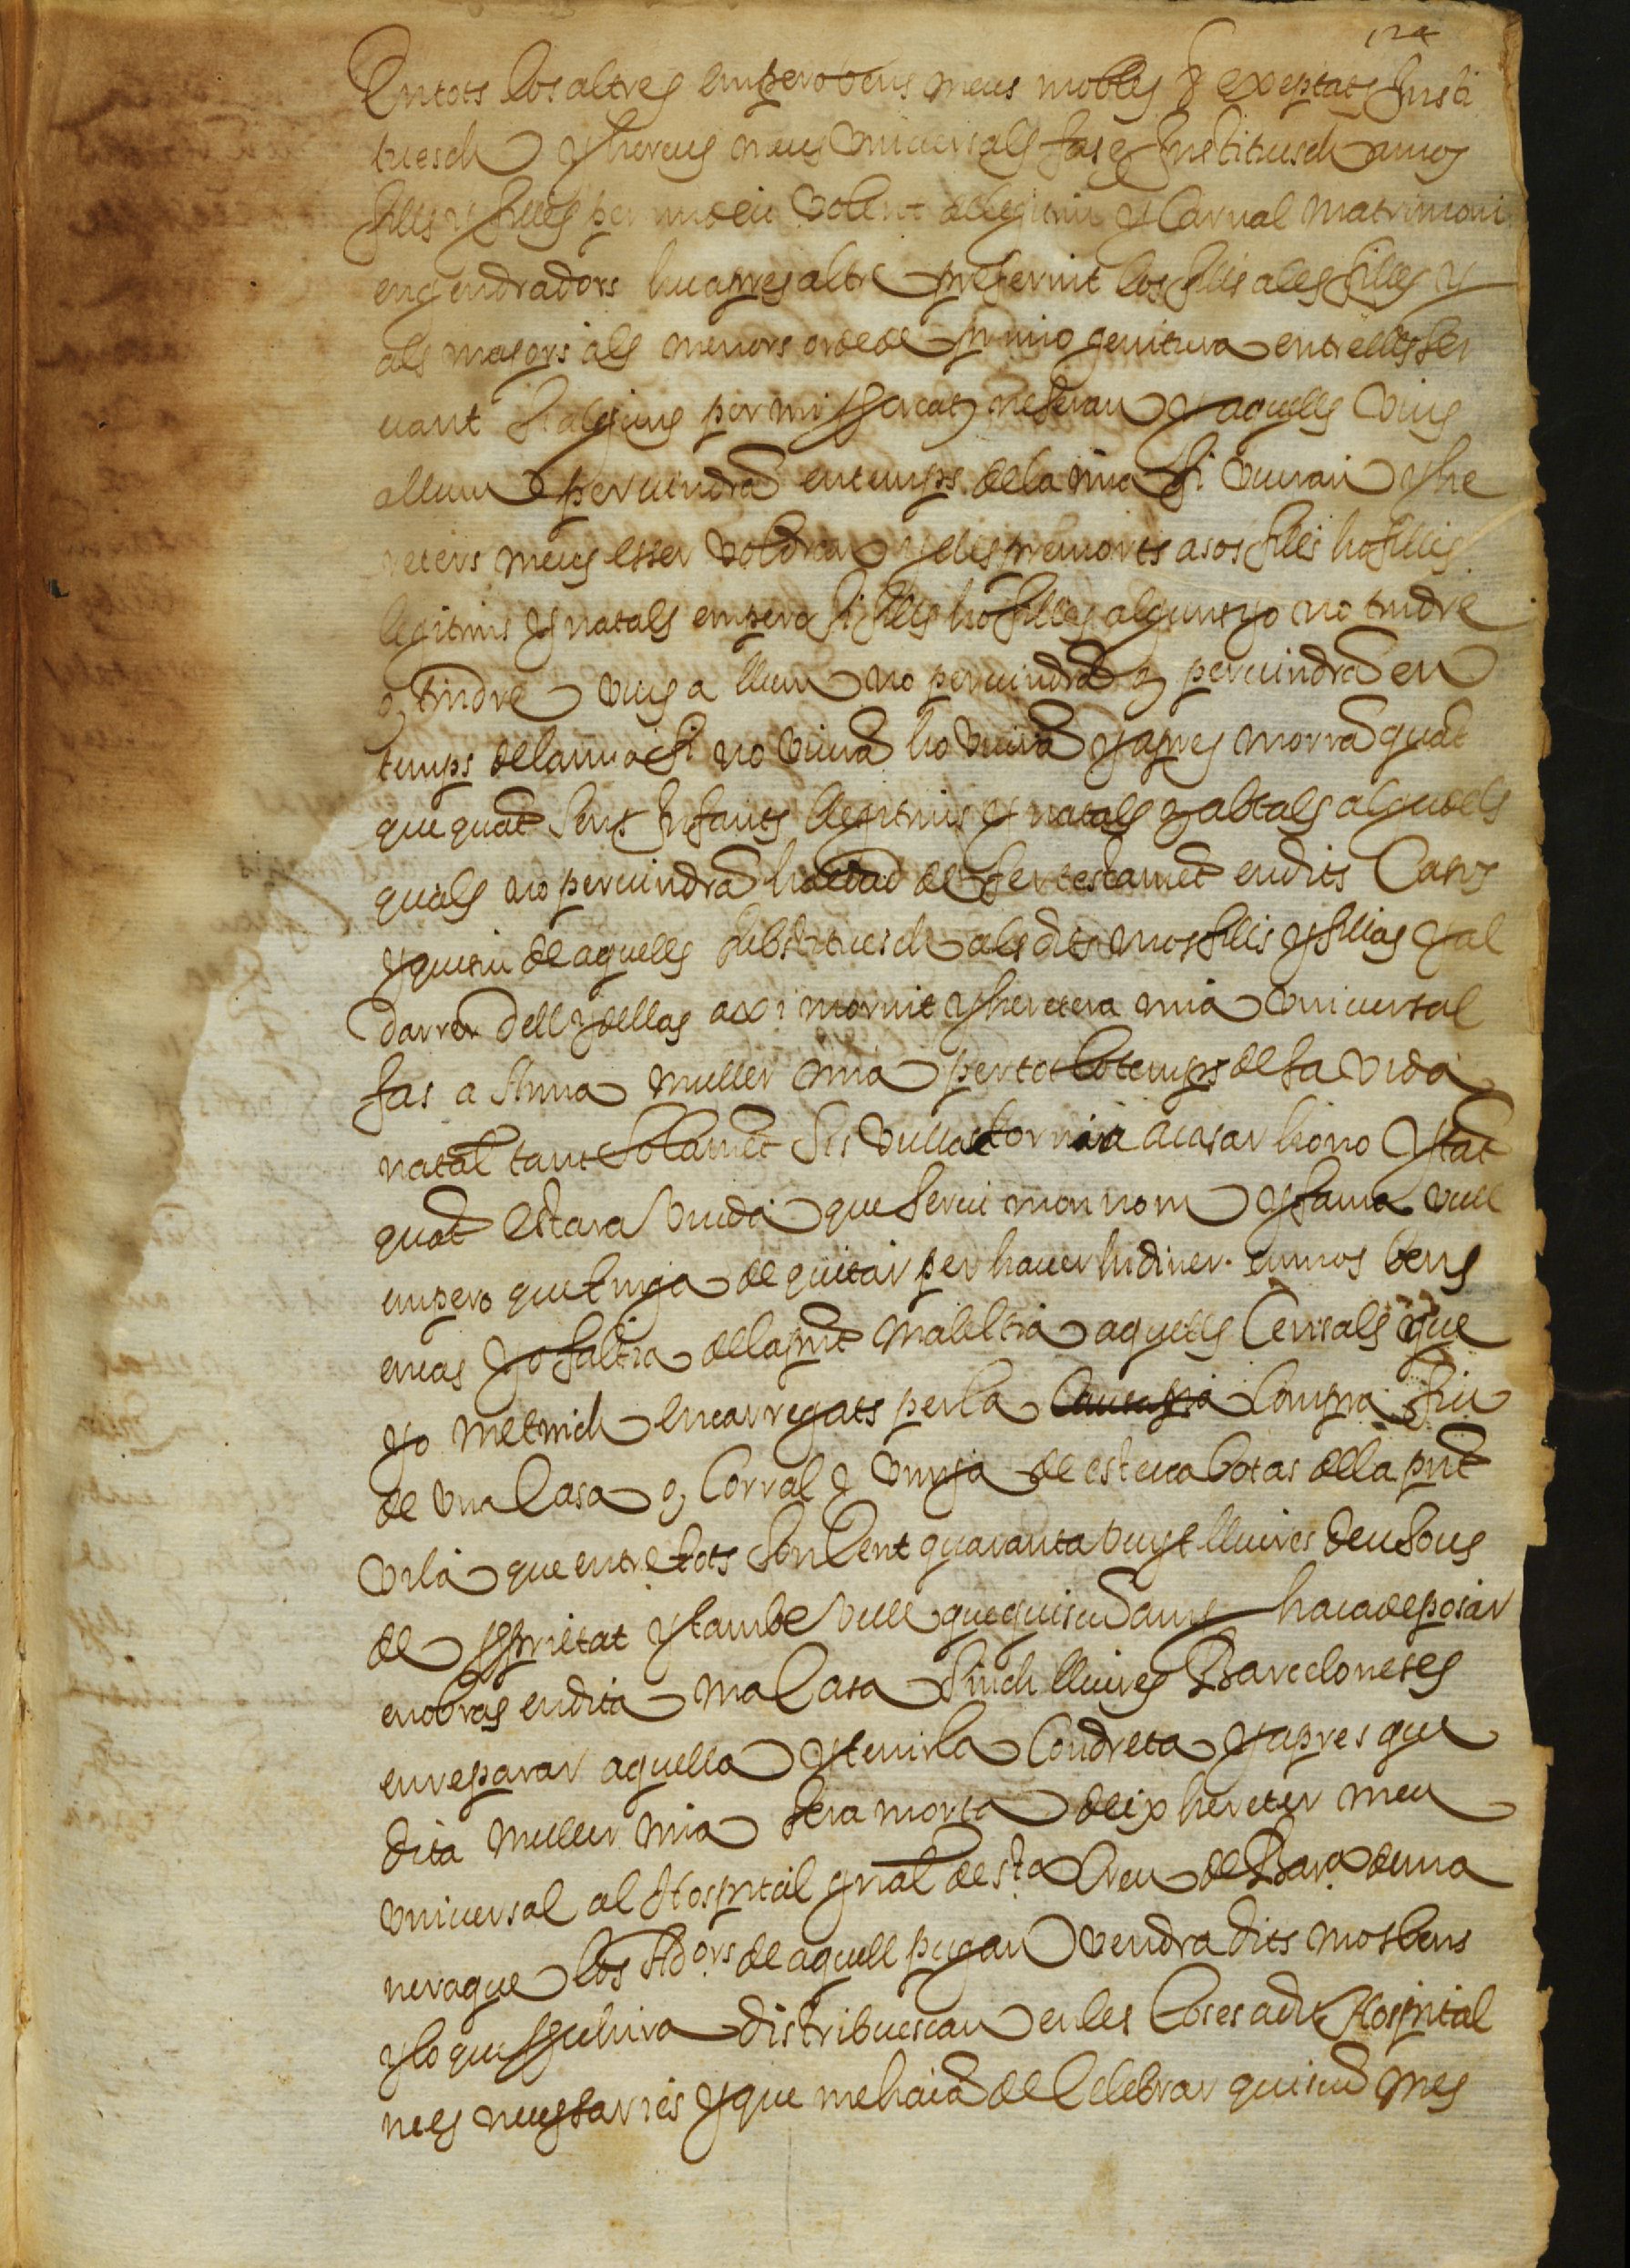 124
En tots los altres empero bens meus mobles & exeptats Insti
tuesch y hereus meus universals fas e Instituesch a mos
fills y filles per mi de un volent e llegitim y Carnal matrimoni
engendradors hu apres altre preferint los fills a les filles y
als majors als menors orde de primogenitura entre ells ser
vant si alguns per mi procreats ne seran y aquells vius
a llum pervindrã en temps de la mia fi viuran y he
reters meus esser voldran y dels premorts a sos fills ho filles
legitims y natals empero si fills ho filles algunt yo no tindre
o, tindre vius a llum no pervindrã o, pervindrã en
temps de la mia fi no viurã ho viurã y apres morrã quãt
que quãt sens Infants llegitims y natals o, ab tals algu dels
quals no pervindrã ha edad de fer testamẽt en dits Casos
y quiscu de aquells substituesch als dits mos fills y fillas y al
darrer dell y dellas axi morint y heretera mia universal
fas a Anna muller mia per tot lo temps de sa vida
natal tant solamẽt sis vulla tornara a casar ho no y tãt
quãt estara viuda que servi mon nom y fama vull
empero que tinga de quitar per haver hi diner en mos bens
en cas yo faltia de la pñt malaltia aquells Censals que
yo me tinch encarregats per la compra fiu
de una Casa o, Corral y vinya de esteva botas de la pñt
vila que entre tots son Cent quaranta vuyt lliures deu sous
de proprietat y tambe vull que quiscũ any haia de posar
en obras en dita ma Casa sinch lliures Barceloneses
en reparar aquella y tenirla Condreta y apres que
dita muller mia sera morta deix hereter meu
universal al Hospital gñal de Sta Creu de Bara de ma
nera que los Adors de aquell pugan vendra dits mos bens
y lo que procehira distribuescan en les Coses a dit Hospital
mes necessaries y que me haiã de Celebrar quiscũ mes